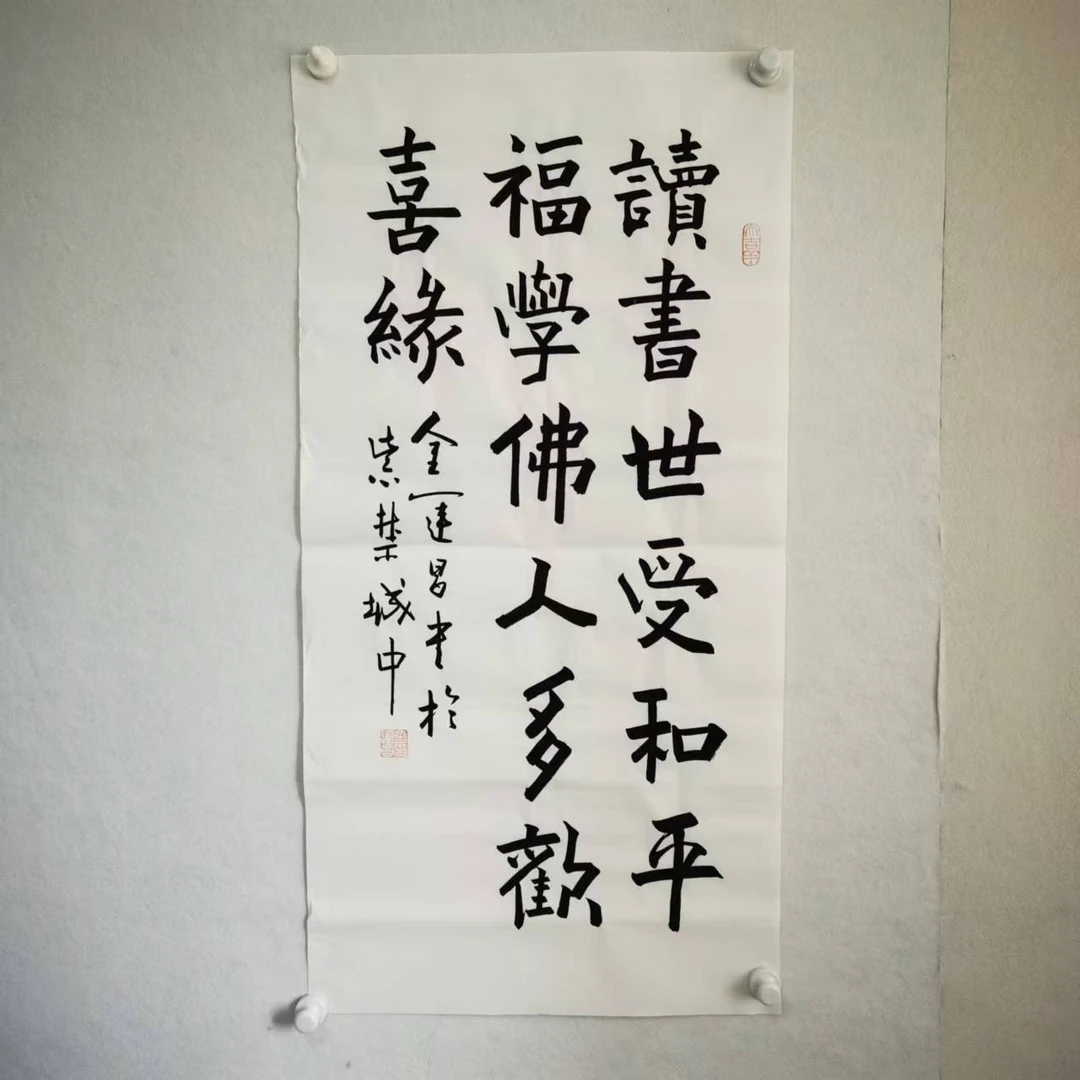 讀書世受和平
福學佛人多歡
喜緣
金運昌书於
紫禁城中